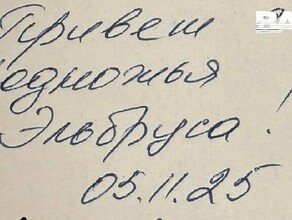 Привет
подножья
Эльбруса!
05.11.25